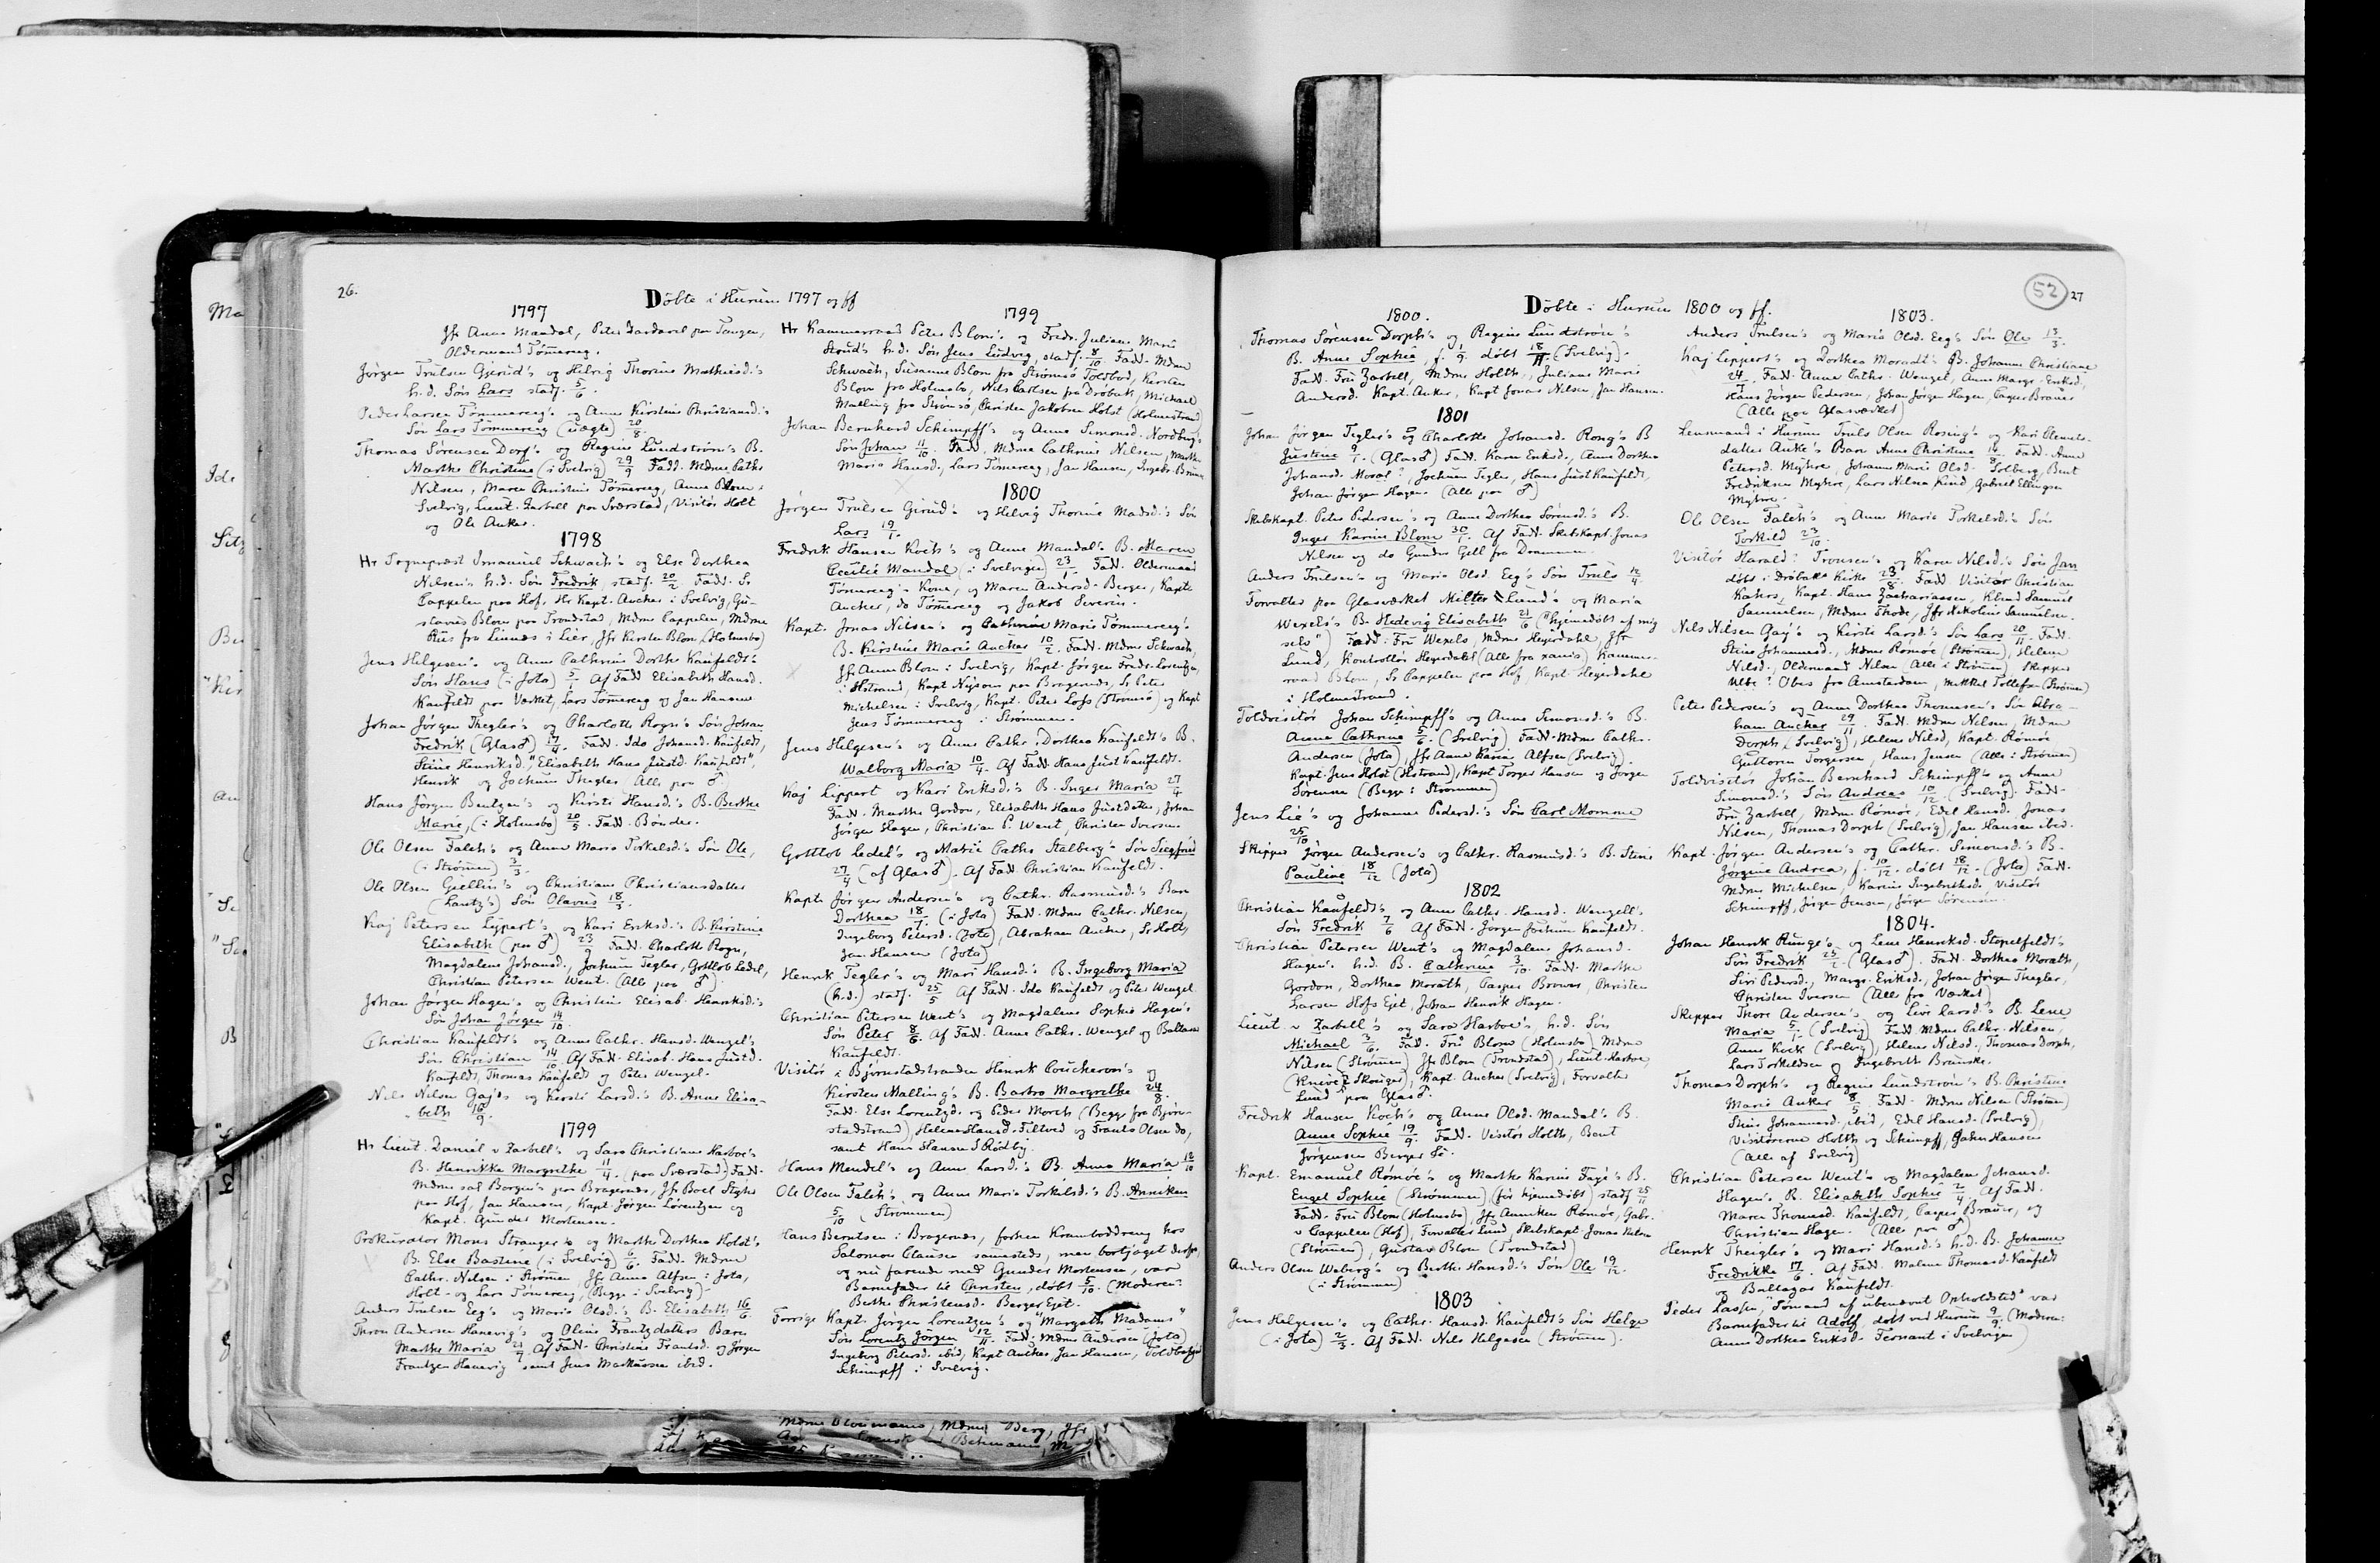 26.
Döbte i Hurum 1797 og ff
1797
Jfr Anna Mandal, Peter paa Tangen,
Oldermand Tømmereeg.
Jørgen Trulsen Gjerud's og Helvig Thorine Mathiesd.'s
h.d. Søn Lars stadf. 5/6.
Peder Larsen Tømmereeg's og Anne Kirstine Christiansd.'s
Søn Lars Tømmereeg (uægte) 20/8.
Thomas Sørensen Dorf's og Regine Lundstrøm's B.
Marthe Christine (i Svelvig) 29/9 Fadd. Mdme Cathr
Nilsen, Maren Christine Tømmereeg, Anne Blom i
Svelvig, Lieut. Zarbell paa Sværstad, Visitør Holt
og Ole Anker.
1798
Hr Sogneprest Imanuel Schwach's og Else Dorthea
Nilsen's h.d. Søn Fredrik, stadf. 20/2 Fadd. Sr
Cappelen paa Hof, Hr Kapt. Ancher i Svelvig, Gu-
stava Blom paa Trondstad, Mdme Cappelen, Mdme
Rus fra Linnes i Lier, Jfr Kirsten Blom (Holmsbo)
Jens Helgesen's og Anne Cathrine Dorthe Kaufeldt's
Søn Hans (i Jota) 5/1 Af Fadd Elisabeth Hansd.
Kaufeldt paa Værket, Lars Tømereeg og Jan Hansen
Johan Jørgen Thegler's og Charlotte Rogn's Søn Johan
Fredrik (Glas♂) 17/4. Fadd. Ida Johansd. Kaufeldt,
Stine Henriksd., "Elisabeth Hans Justd. Kaufeldt",
Henrik og Jochum Thegler, Alle paa ♂
Hans Jørgen Bentzen's og Kirsti Hansd.'s B. Berthe
Marie, (i Holmsbo) 20/5. Fadd. Bønder.
Ole Olsen Faleh's og Anne Maria Torkelsd.'s Søn Ole,
(i Strømmen) 3/3.
Ole Olsen Gjellum's og Christiane Christiansdatter
(Lautz's) Søn Olavus 18/3.
Kaj Petersen Lippert's og Kari Eriksd.'s B. Kirstine
Elisabeth (paa ♂) 23/9 Fadd. Charlotte Rogn,
Magdalene Johansd., Jochum Tegler, Gottlob Ledel,
Christian Petersen Went. (Alle paa ♂).
Johan Jørgen Hagen's og Christine Elisab. Henriksd.'s
Søn Johan Jørgen 14/10.
Christian Kaufeldt's og Anne Cathr. Hansd. Wenzel's
Søn Christian 14/10 Af Fadd. Elisab. Hans Justd.
Kaufeldt, Thomas Kaufeldt og Peter Wenzel.
Nils Nilsen Gaj's og Kirsti Larsd.'s B. Anne Elisa-
beth 16/9.
1799
Hr Lieut. Daniel v Zarbell's og Sara Christiane Harboe's
B. Henrikke Margrethe 11/4. (paa Sværstad) Fadd.
Mdme sal Borgen's paa Bragernes, Jfr Boel
paa Hof, Jan Hansen, Kapt. Jørgen Lorentzen og
Kapt. Gunder Mortensen.
Prokurator Mons Stranger's og Marthe Dorthea Holst's
B. Else Bastine (i Svelvig) 6/6. Fadd. Mdme
Cathr. Nilsen i Strømen, Jfr Anne Alfsen i Jota,
Holt og Lars Tømereeg, (Begge i Svelvig).
Anders Trulsen Eeg's og Maria Olsd.'s B. Elisabeth 16/6.
Thron Andersen Hanevig's og Oline Frantzdatters Barn
Marthe Maria 21/7. Af Fadd. Christine Frantsd. og Jørgen
Frantzen Hanevig samt Jens Markussen ibid.
1799
Hr Kammerraad Peter Blom's og Fredr. Julian. Marie
Stoud's h.d. Søn Jens Ludvig, stadf. 8/10 Fadd. Mdme
Schwach, Susanne Blom fra Strømsø Toldbod, Kirsten
Blom fra Holmsbo, Nils Carlsen fra Drøbak, Michael
Malling fra Strømsø, Christen Jakobsen Holst (Holmestrand)
Johan Bernhard Schimpff's og Anne Simonsd. Nordby's
Søn Johan 11/10. Fadd. Mdme Cathrine Nilsen, Marthe
Maria Hansd., Lars Tømereeg, Jan Hansen, Ingebr. Brunse
1800
Jørgen Trulsen Girud's og Helvig Thorine Madsd.'s Søn
Lars 19/1.
Fredrik Hansen Koch's og Anne Mandal's B. Maren
Cecilie Mandal (i Svelvigen) 23/1. Fadd. Oldermand
Tømereeg's Kone, og Maren Andersd. Berger, Kapt.
Ancher, do Tømereeg og Jakob Severin.
Kapt. Jonas Nilsen's og Cathrine Marie Tømmereeg's
B. Kirstine Marie Ancher 10/2. Fadd. Mdme Schwach,
Jfr Anne Blom i Svelvig, Kapt. Jørgen Fredr. Lorentzen,
i Hstrand, Kapt Nysom paa Bragernes, Sr Peter
Michelsen i Svelvig, Kapt. Peter Lofs (Strømsø) og Kapt
Jens Tømmereeg i Strømmen.
Jens Helgesen's og Anne Cathr. Dorthea Kaufeldt's B.
Walborg Maria 10/4. Af Fadd Hans Just Kaufeldt.
Kaj Lippert og Kari Eriksd.'s B. Inger Maria 27/4
Fadd. Marthe Gordon, Elisabeth Hans Justdatter, Johan
Jørgen Hagen, Christian P. Went, Christen Iversen
Gottlob Ledel's og Marie Cathr. Stalberg's Søn Siegfried
27/4 (af Glas♂). Af Fadd. Christian Kaufeldt.
Kapt. Jørgen Andersen's og Cathr. Rasmusd.'s Barn
Dorthea 18/7. (i Jota) Fadd. Mdme Cathr. Nilsen,
Ingeborg Petersd. (Jota), Abraham Ancher, Sr Holt,
Jan Hansen (Jota)
Henrik Tegler's og Mari Hansd.'s B. Ingeborg Maria
(h.d.) stadf. 25/5 Af Fadd. Ida Kaufeldt og Peter Wenzel
Christian Petersen Went's og Magdalene Sophie Hagen's
Søn Peter 8/6. Af Fadd. Anne Cathr. Wenzel og Baltasar
Kaufeldt.
Visitør i Bjørnestadstranden Henrik Coucheron's og
Kirsten Malling's B. Barbro Margrethe 24/8.
Fadd. Else Lorentzd. og Peder Morch (Begge fra Bjørn-
stadstrand), Helene Hansd. Filtved og Frants Olsen do,
samt Hans Hansen S Rødby.
Hans Mendel's og Anne Larsd.'s B. Anne Maria 12/10
Ole Olsen Faleh's og Anne Maria Torkilsd.'s B. Anniken
5/10 (Strømmen)
Hans Berntsen i Bragernes, forhen Krambøddreng hos
Salomon Clausen sammesteds, men bortjaget derfr,
og nu farende med Gunder Mortensen, var
Barnefader til Christen, døbt 5/10. (Moderen:
Berthe Christensd. Berger Ejet.
Forrige Kapt. Jørgen Lorentzen's og "Margeth Madams"
Søn Lorentz Jørgen 12/11. Fadd. Mdme Andersen (Jota)
Ingeborg Petersd. ibid, Kapt Ancher, Jan Hansen, Toldbetjent
Schimpff i Svelvig.
52
27
Döbte i Hurum 1800 og ff.
1800.
Thomas Sørensen Dorph's og Regine Lundstrøm's
B. Anne Sophie, f. 1/9 døbt 18/11 (Svelvig).
Fadd. Fru Zarbell, Mdme Holth, Juliane Marie
Andersd. Kapt. Anker, Kapt Jonas Nilsen, Jan Hansen.
1801
Johan Jørgen Tegler's og Charlotte Johansd. Rong's B
Justine 9/1. (Glas♂) Fadd. Karen Eriksd., Anne Dorthea
Johansd. Moral?, Jochum Tegler, Hans Just Kaufeldt,
Johan Jørgen Hagen. (Alle paa ♂)
Skibskapt. Peter Pedersen's og Anne Dorthea Sørensd.'s B.
Inger Karine Blom 30/1. Af Fadd. Skibskapt. Jonas
Nilsen og do Gunder Gell fra Drammen.
Anders Trulsen's og Maria Olsd. Eeg's Søn Truls 12/4.
Forvalter paa Glasværket Milter Lund's og Maria
Wexels's B. Hedevig Elisabeth 21/6 ("hjemedøbt af mig
selv") Fadd: Fru Wexels, Mdme Heyerdahl, Jfr
Lund, Kontrollør Heyerdahl (Alle fra Xania) Kammer-
raad Blom, Sr Cappelen paa Hof, Kapt. Heyerdahl
i Holmestrand.
Toldvisitør Johan Schimpff's og Anne Simonsd.'s B.
Anne Cathrine 5/6. (Svelvig) Fadd. Mdme Cathr.
Andersen (Jota), Jfr Anne Karine Alfsen (Svelvig).
Kapt. Jens Holst (Hstrand), Kapt Torger Hansen og Jørgen
Sørensen (Begge i Strømmen)
Jens Lie's og Johanne Pedersd.'s Søn Carl Momme
25/10
Skipper Jørgen Andersen's og Cathr. Rasmusd.'s B. Stine
Pauline 18/12 (Jota)
1802
Christian Kaufeldt's og Anne Cathr. Hansd. Wenzell's
Søn Fredrik 7/6 Af Fadd. Jørgen Jochum Kaufeldt.
Christian Petersen Went's og Magdalene Johansd.
Hagen's h.d. B. Cathrine 3/10. Fadd. Marthe
Gordon, Dorthea Morath, Casper Brauer, Christen
Larsen Hofs Ejet, Johan Henrik Hagen.
Lieut. v Zarbell's og Sara Harboe's h.d. Søn
Michael 3/6. Fadd. Fru Blom (Holmsbo) Mdme
Nilsen (Strømmen) Jfr Blom (Trondstad), Lieut. Harboe,
, Kapt. Ancher (Svelvig), Forvalter
Lund paa Glas♂.
Fredrik Hansen Koch's og Anne Olsd. Mandal's B.
Anne Sophie 19/9. Fadd. Visitør Holth, Bent
Jørgensen Berger Ie.
Kapt. Emanuel Rømøe's og Marthe Karine Faye's B.
Engel Sophie (Strømmen) (før hjemedøbt) stadf 25/11
Fadd. Fru Blom (Holmsbo), Jfr Anniken Rømøe, Gabr.
v Cappelen (Hof), Forvalter Lund, Skibskapt Jonas Nilsen
(Strømen), Gustav Blom (Trondstad)
Anders Olsen Weberg's og Berthe Hansd.'s Søn Ole 19/12.
(i Strømmen)
1803
Jens Helgesen's og Cathr. Hansd. Kaufeldt's Søn Helge
(i Jota) 2/3. Af Fadd. Nils Helgesen (Strømen).
1803.
Anders Trulsen's og Maria Olsd. Eeg's Søn Ole 13/3.
Kaj Lippert's og Dorthea Moradt's B. Johanne Christiane
24/7. Fadd. Anne Cathr. Wenzel, Anne Margr. Eriksd,
Hans Jørgen Pedersen, Johan Jørgen Hagen, Casper Brauer
(Alle paa Glasværket)
Lensmand i Hurum Truls Olsen Rosing's og Kari Clemets-
datter Anke's Barn Anne Christine 14/8. Fadd. Anne
Petersd. Myhre, Johanne Marie Olsd. Solberg, Bent
Fredriksen Myhre, Lars Nilsen Rind, Gabriel Ellingsen
Myhre.
Ole Olsen Faleh's og Anne Marie Torkelsd.'s Søn
Torkild 23/10.
Visitør Harald? Tronsen's og Karen Nilsd.'s Søn Jan
døbt i Drøbaks Kirke 23/8. Fadd Visitør Christian
Katers, Kapt. Hans Zachariassen, Klaus Samuel
Samuelsen, Mdme Thode, Jfr Nikoline Samuelsen.
Nils Nilsen Gay's og Kirsti Larsd.'s Søn Lars 20/11. Fadd.
Stine Johannesd., Mdme Rømøe (Strømen), Helene
Nilsd., Oldermand Nilsen (Alle i Strømen), Skipper
Ulbe? Obes fra Amsterdam, Mikkel Tollefsen (Strømen)
Peter Pedersen's og Anne Dorthea Thomesen's Søn Abra-
ham Ancher 29/11. Fadd. Mdme Nilsen, Mdme
Dorph, (Svelvig), Helene Nilsd, Kapt. Rømøe
Guttorm Torgersen, Hans Jensen (Alle i Strømen)
Toldvisitør Johan Bernhard Schimpff's og Anne
Simonsd.'s Søn Andreas 10/12 (Svelvig). Fadd.
Fru Zarbell, Mdme Rømøe, Edel Hansd. Jonas
Nilsen, Thomas Dorph (Svelvig), Jan Hansen ibid.
Kapt. Jørgen Andersen's og Cathr. Simonsd.'s B.
Jørgine Andrea, f. 10/12. døbt 18/12. (Jota) Fadd.
Mdme Michelsen, Karine Ingebrittsd. Visitør
Schimpff, Jørgen Jensen, Jørgen Sørensen.
1804.
Johan Henrik Runge's og Lene Henriksd. Stopelfeldt's
Søn Fredrik 25/2. (Glas♂). Fadd. Dorthea Morath,
Siri Pedersd., Margr. Eriksd., Johan Jørgen Thegler,
Christen Iversen (Alle fra Værket)
Skipper Thore Andersen's og Live Larsd.'s B. Lene
Maria 5/1. (Svelvig) Fadd. Mdme Cathr. Nilsen,
Anne Kock (Svelvig), Helene Nilsd., Thomas Dorph,
Lars Torkildsen og Ingebreth Brunske.
Thomas Dorph's og Regine Lundstrøm's B. Christine
Marie Anker 8/5. Fadd. Mdme Nilsen (Strømen)
Stine Johannesd., ibid, Edel Hansd. (Svelvig),
Visitørerne Holth og Schimpff, Jahn Hansen
(Alle af Svelvig)
Christian Petersen Went's og Magdalene Johansd.
Hagen's B. Elisabeth Sophie 2/4. Af Fadd.
Maren Thomesd. Kaufeldt, Casper Brauer, og
Christian Hagen. (Alle paa ♂)
Henrik Theigler's og Mari Hansd.'s h.d. B. Johanne
Fredrikke 17/6. Af Fadd. Malene Thomasd. Kaufeldt
og Baltazar Kaufeldt.
Peder Lassen, "Sømand af ubenævnt Opholdsted" var
Barnefader til Adolf, døbt ved Hurum 9/9. (Moderen:
Anne Dorthea Eriksd. Ternant i Svelvigen)